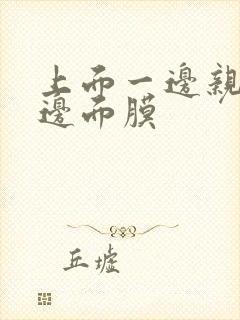 上而一邊親
邊而膜
丘墟